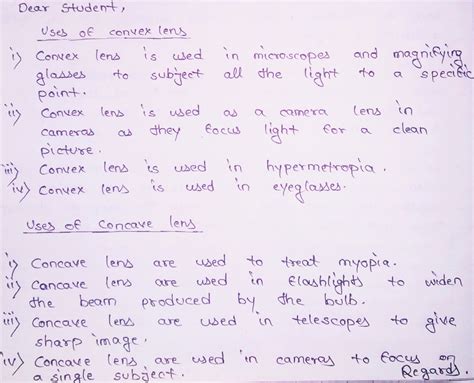 Dear Student,
Uses of convex lens
i) Convex lens is used in microscopes and magnifying
glasses to subject all the light to a specific
point.
ii) Convex lens is used as a camera lens in
cameras as they focus light for a clean
picture.
iii) Convex lens is used in hypermetropia.
iv) Convex lens is used in eyeglasses.
Uses of Concave lens
i) Concave lens are used to treat myopia.
ii) Concave lens are used in flashlights to widen
the beam produced by the bulb.
iii) Concave lens are used in telescopes to give
sharp image.
iv) Concave lens are used in cameras to focus on
a single subject. Regards.